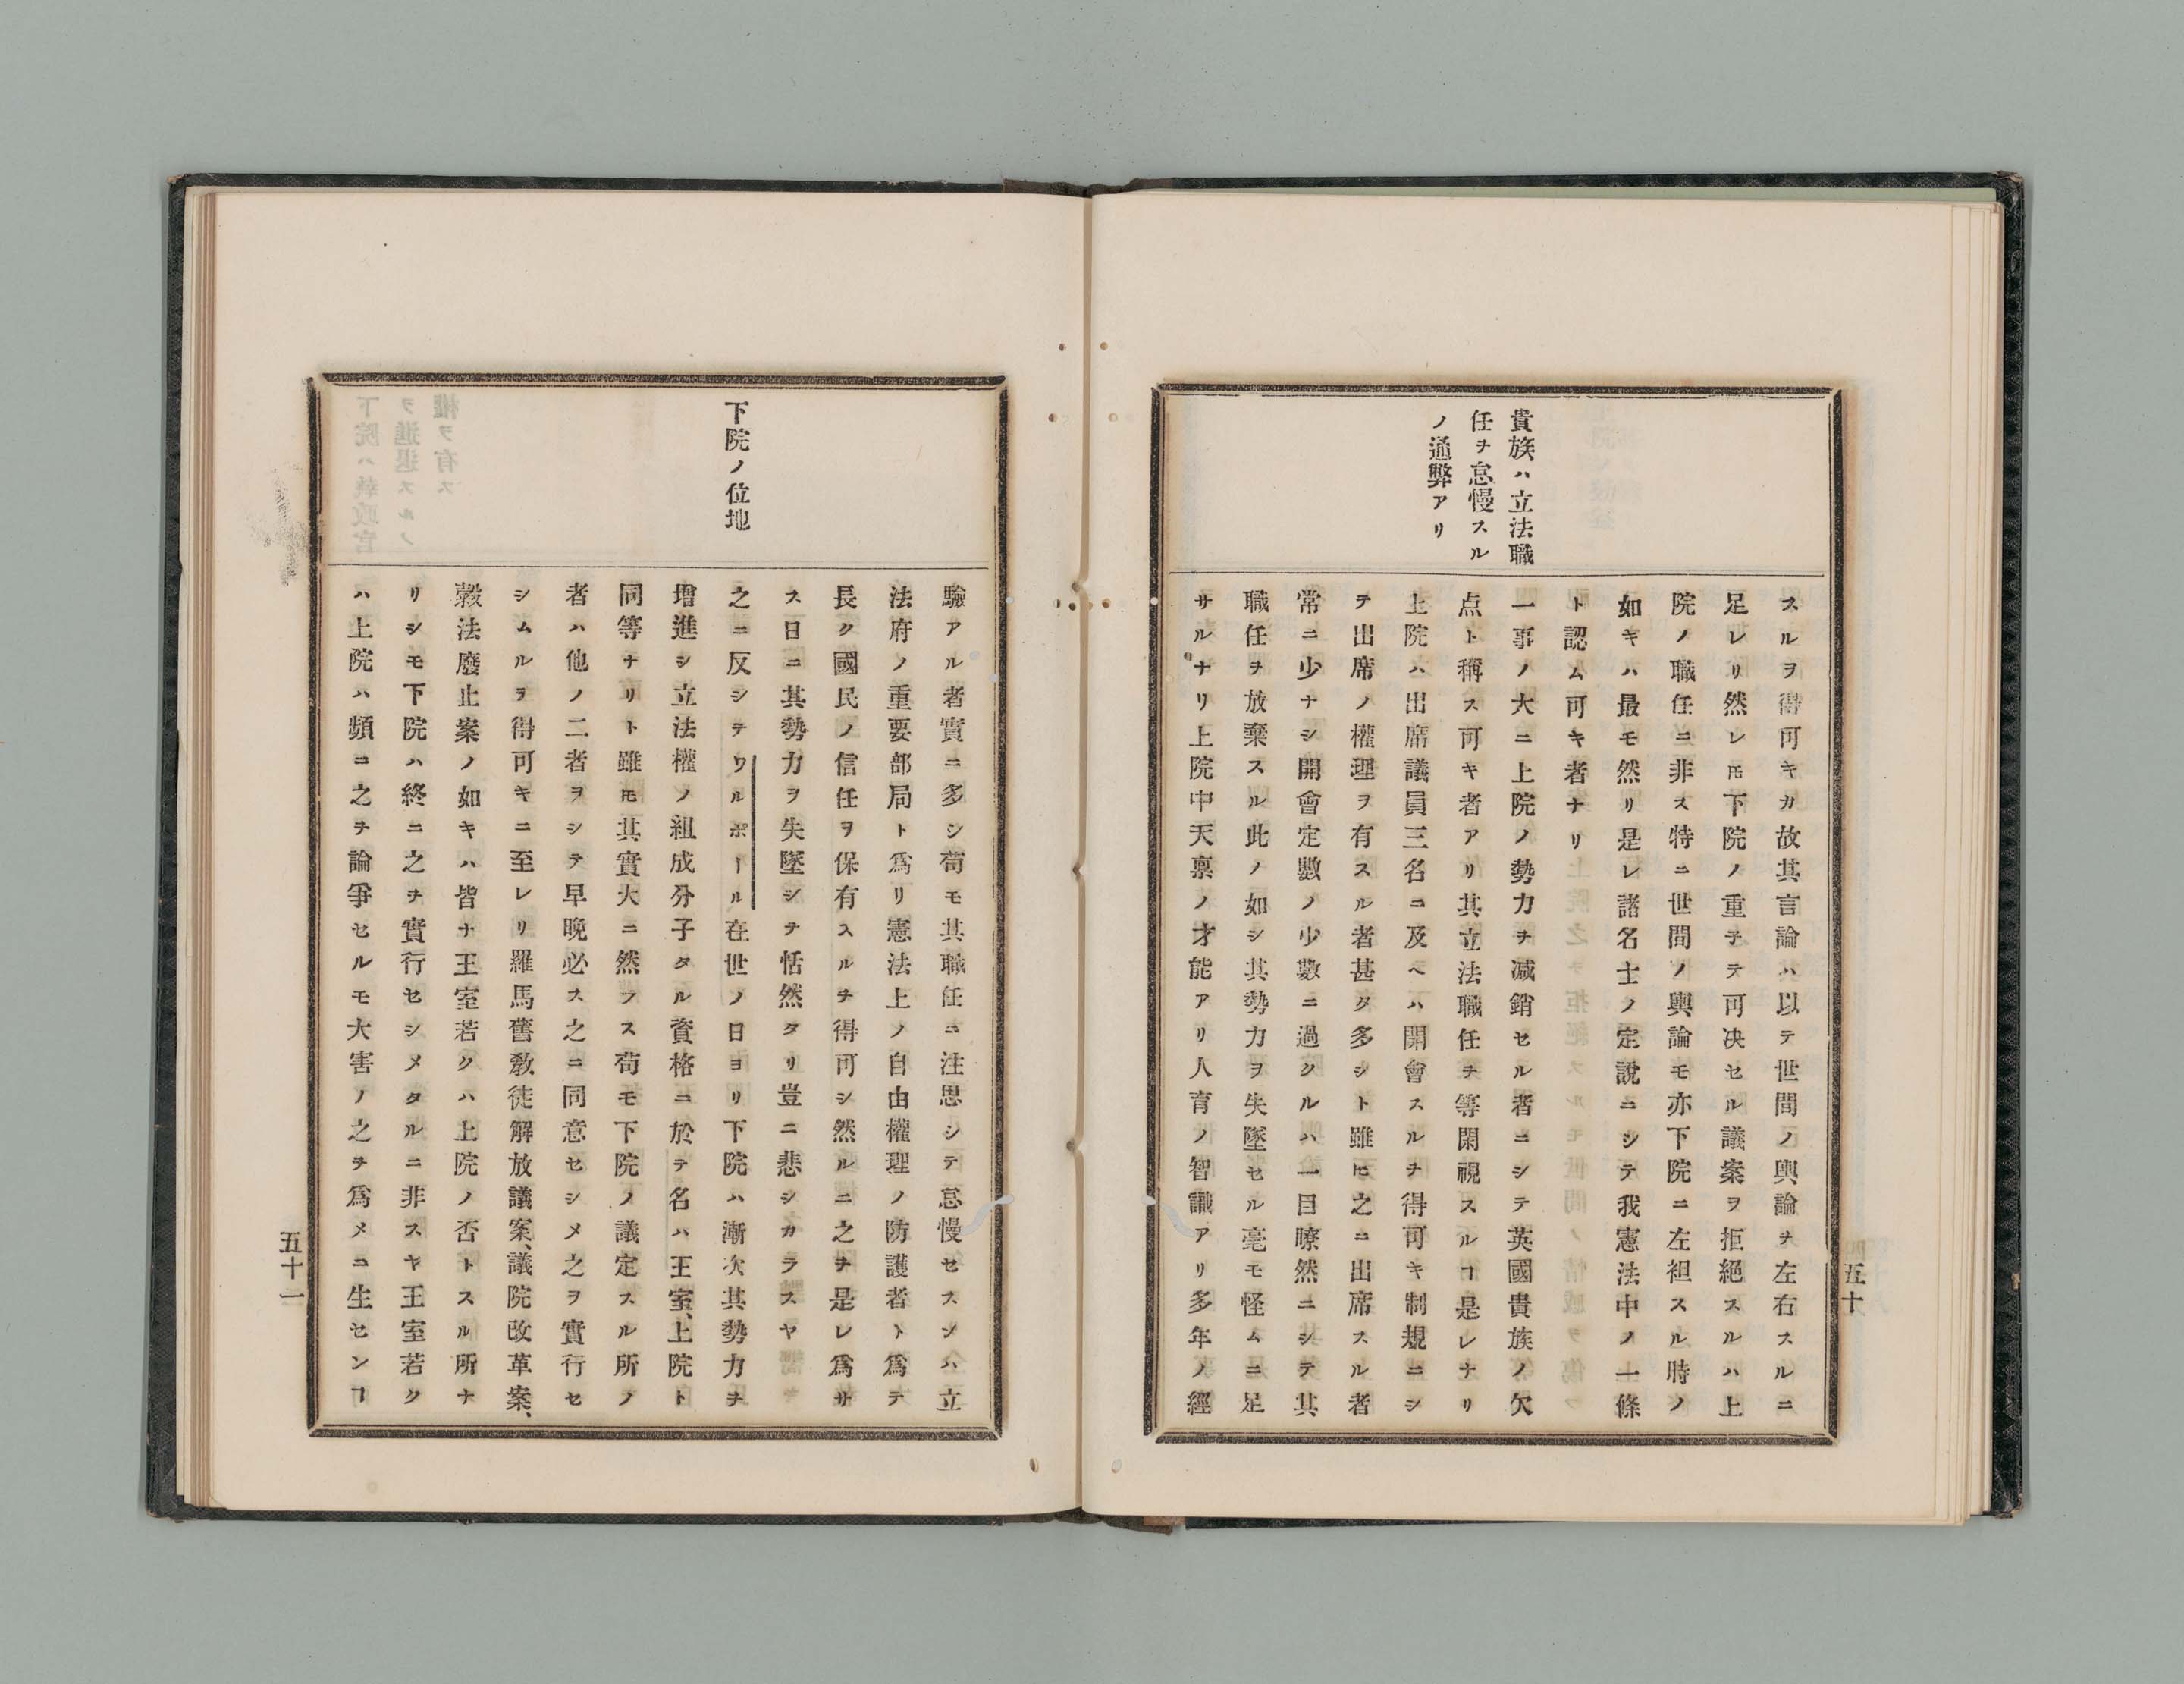 貴族ハ立法職
任ヲ怠慢スル
ノ通弊アリ
スルヲ得可キカ故其言論ハ以テ世間ノ輿論ヲ左右スルニ
足レリ然レ𪜈下院ノ重子テ可决セル議案ヲ拒絕スルハ上
院ノ職任ニ非ス特ニ世間ノ輿論モ亦下院ニ左袒スル時ノ
如キハ最モ然リ是レ諸名士ノ定說ニシテ我憲法中ノ一條
ト認ム可キ者ナリ
一事ノ大ニ上院ノ勢力ヲ减銷セル者ニシテ英國貴族ノ欠
点ト稱ス可キ者アリ其立法職任ヲ等閑視スルヿ是レナリ
上院ハ出席議員三名ニ及ヘハ開會スルヲ得可キ制規ニシ
テ出席ノ權理ヲ有スル者甚タ多シト雖𪜈之ニ出席スル者
常ニ少ナシ開會定數ノ少數ニ過クルハ一目瞭然ニシテ其
職任ヲ放棄スル此ノ如シ其勢力ヲ失墜セル毫モ怪ムニ足
サルナリ上院中天禀ノ才能アリ人育ノ智識アリ多年ノ經
五十
下院ノ位地
驗アル者實ニ多シ苟モ其職任ニ注思シテ怠慢セスンハ立
法府ノ重要部局ト爲リ憲法上ノ自由權理ノ防護者ト爲テ
長ク國民ノ信任ヲ保有スルヲ得可シ然ルニ之ヲ是レ爲サ
ス日ニ其勢力ヲ失墜シテ恬然タリ豈ニ悲シカラスヤ
之ニ反シテワルポール在世ノ日ヨリ下院ハ漸次其勢力ヲ
增進シ立法權ノ組成分子タル資格ニ於テ名ハ王室、上院ト
同等ナリト雖𪜈其實大ニ然ラス苟モ下院ノ議定スル所ノ
者ハ他ノ二者ヲシテ早晩必ス之ニ同意セシメ之ヲ實行セ
シムルヲ得可キニ至レリ羅馬舊敎徒解放議案、議院改革案、
穀法廢止案ノ如キハ皆ナ王室若クハ上院ノ否トスル所ナ
リシモ下院ハ終ニ之ヲ實行セシメタルニ非スヤ王室若ク
ハ上院ハ頻ニ之ヲ論爭セルモ大害ノ之ヲ爲メニ生センヿ
五十一